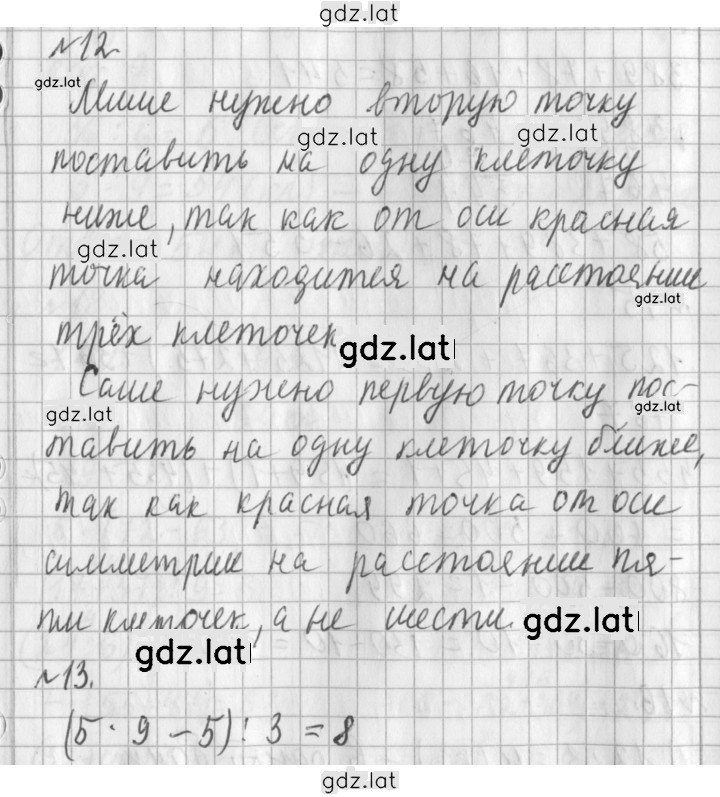 gdz.lat
№12.
gdz.lat
Мише нужно вторую точку
gdz.lat gdz.lat
поставить на одну клеточку
ниже, так как от оси красная
gdz.lat
точка находится на расстоянии
gdz.lat
трёх клеточек
gdz.lat
Саше нужно первую точку пос-
gdz.lat gdz.lat
тавить на одну клеточку ближе,
так как красная точка от оси
симметрии на расстоянии пя-
ти клеточек, а не шести.
gdz.lat
gdz.lat
№13.
(5 · 9 – 5) : 3 = 8
gdz.lat